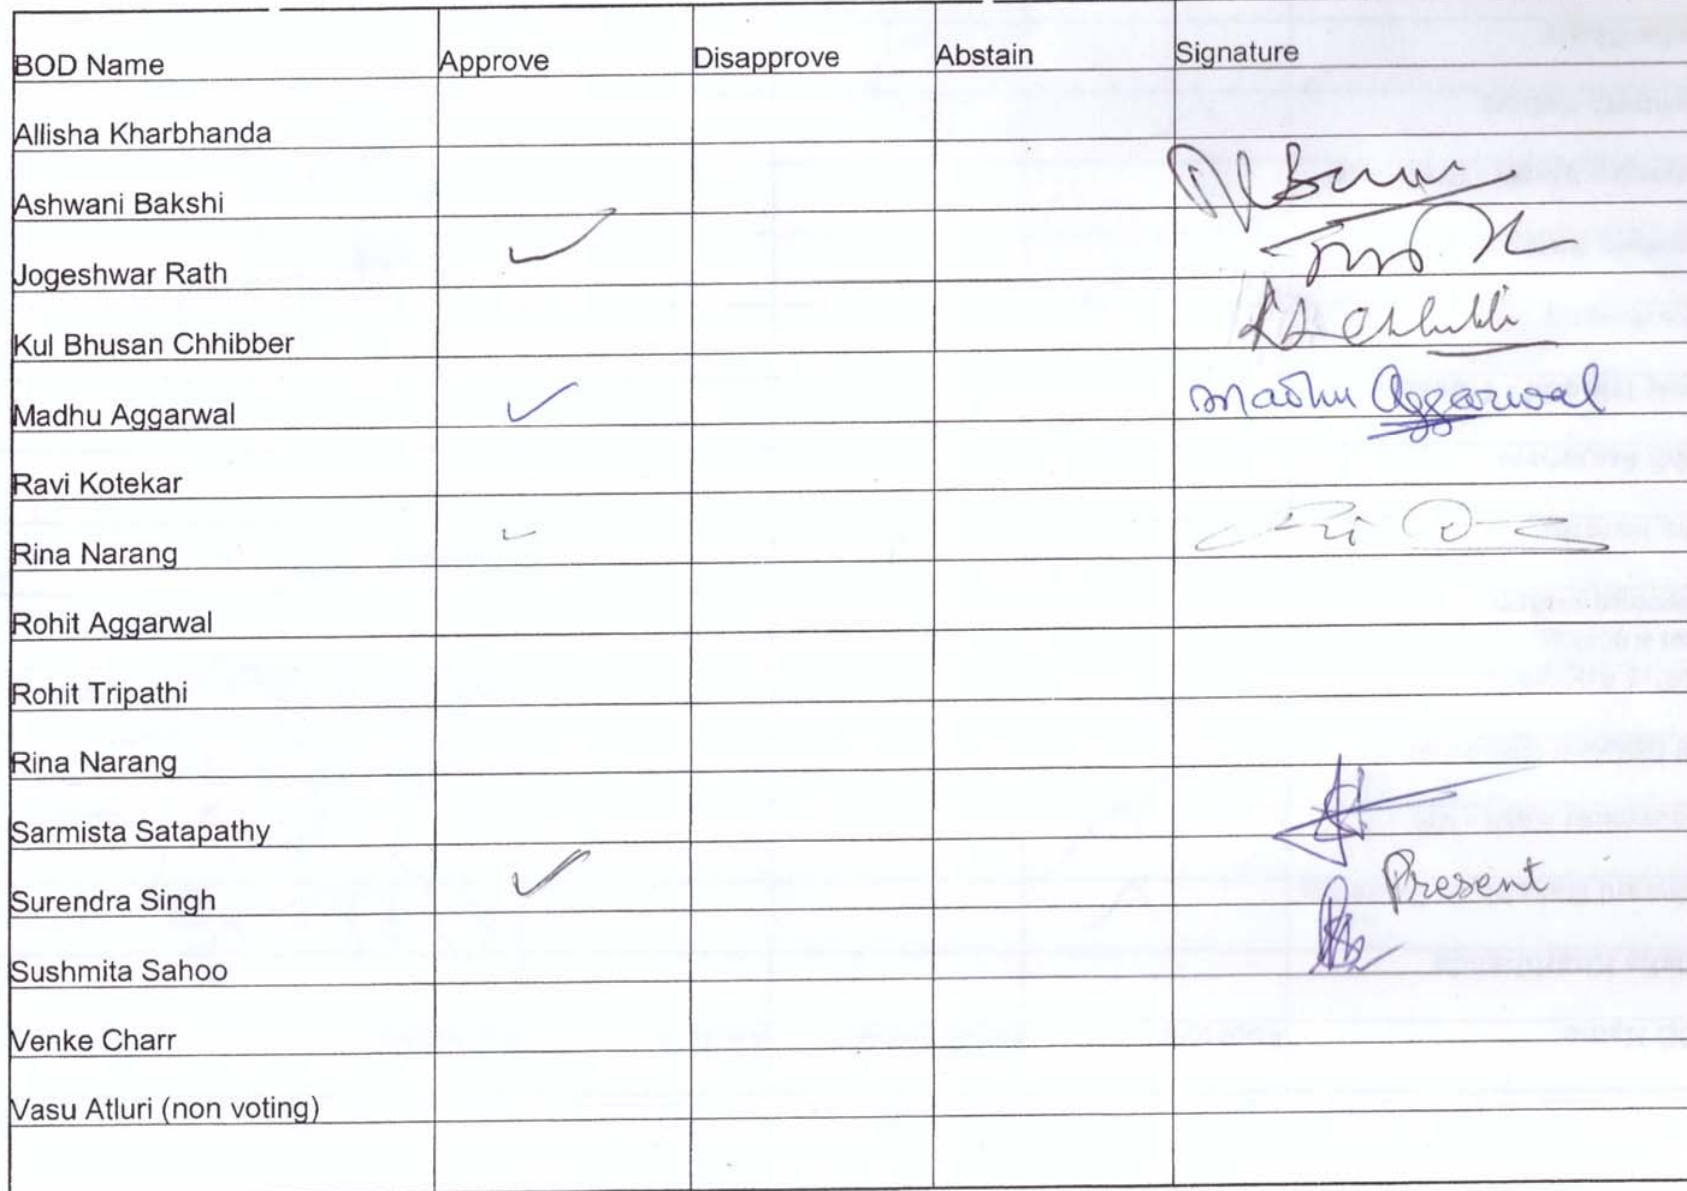 BOD Name Approve Disapprove Abstain Signature
Allisha Kharbhanda
Ashwani Bakshi
Jogeshwar Rath ✓
Kul Bhusan Chhibber
Madhu Aggarwal ✓ Madhu Aggarwal
Ravi Kotekar
Rina Narang ✓
Rohit Aggarwal
Rohit Tripathi
Rina Narang
Sarmista Satapathy
Surendra Singh ✓ Present
Sushmita Sahoo
Venke Charr
Vasu Atluri (non voting)